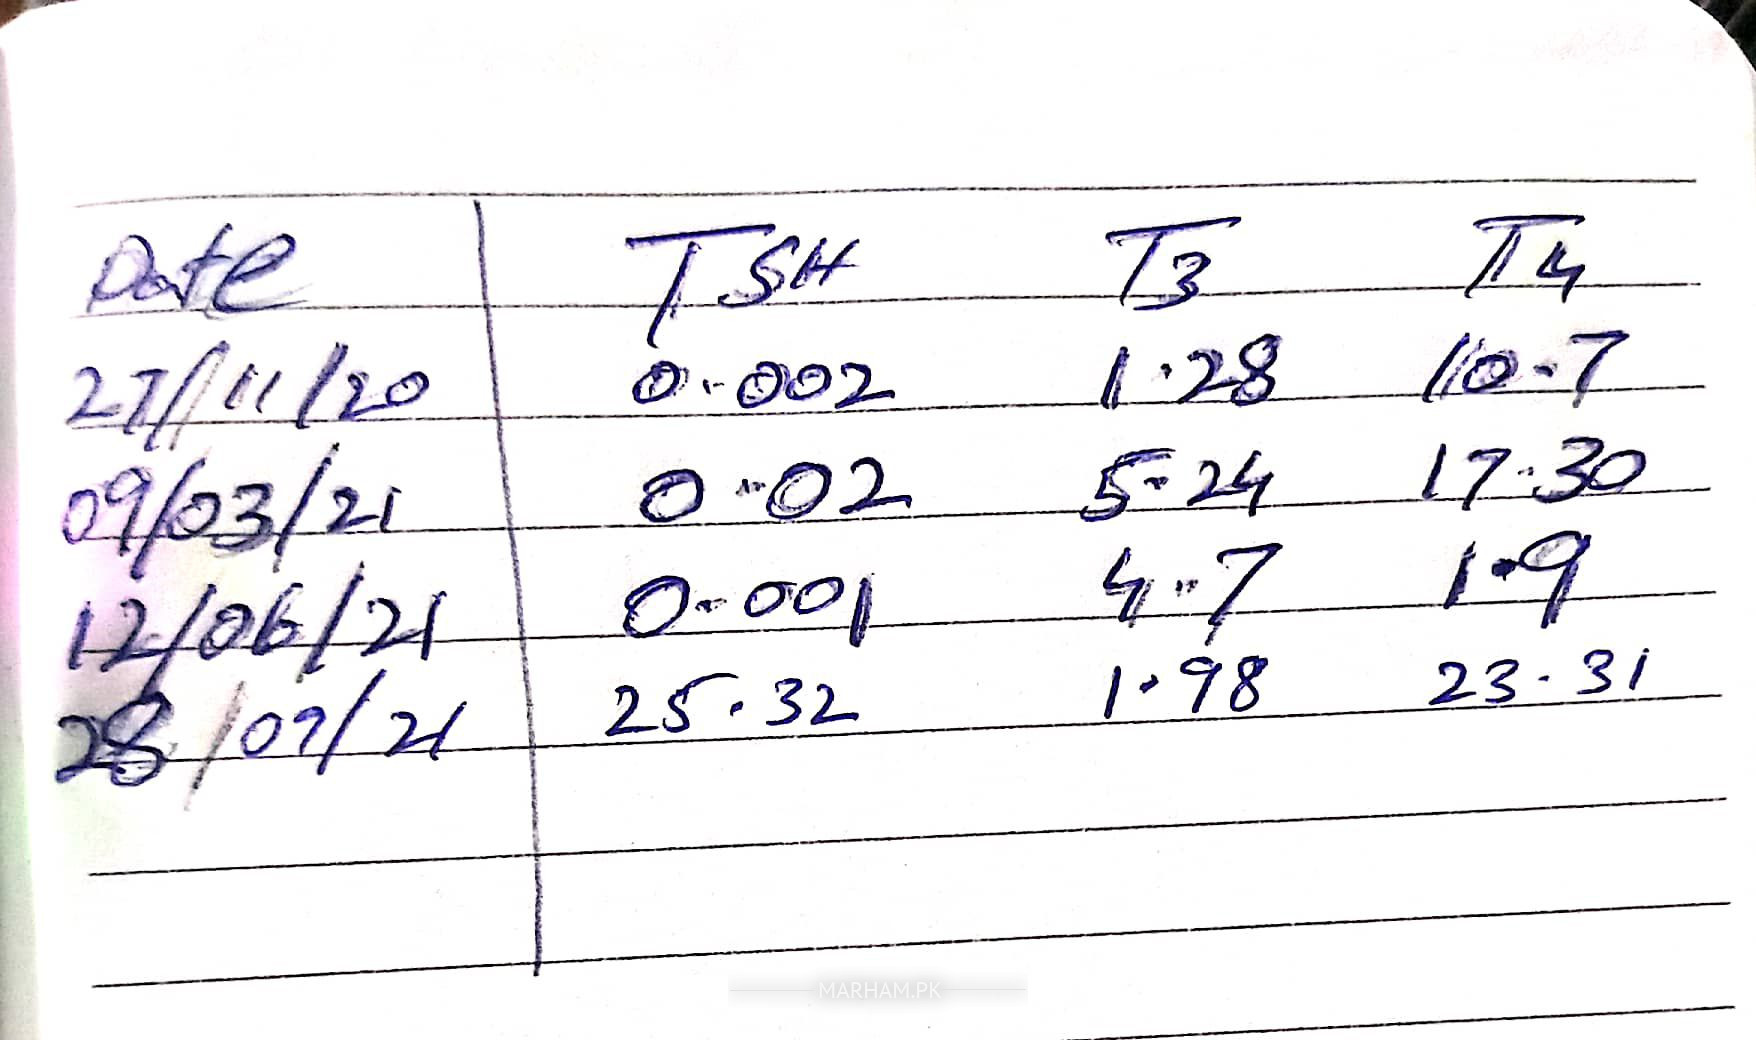 Date TSH T3 T4
27/11/20 0.002 1.28 10.7
09/03/21 0.02 5.24 17.30
12/06/21 0.001 4.7 1.9
28/09/21 25.32 1.98 23.31
MARHAM.PK